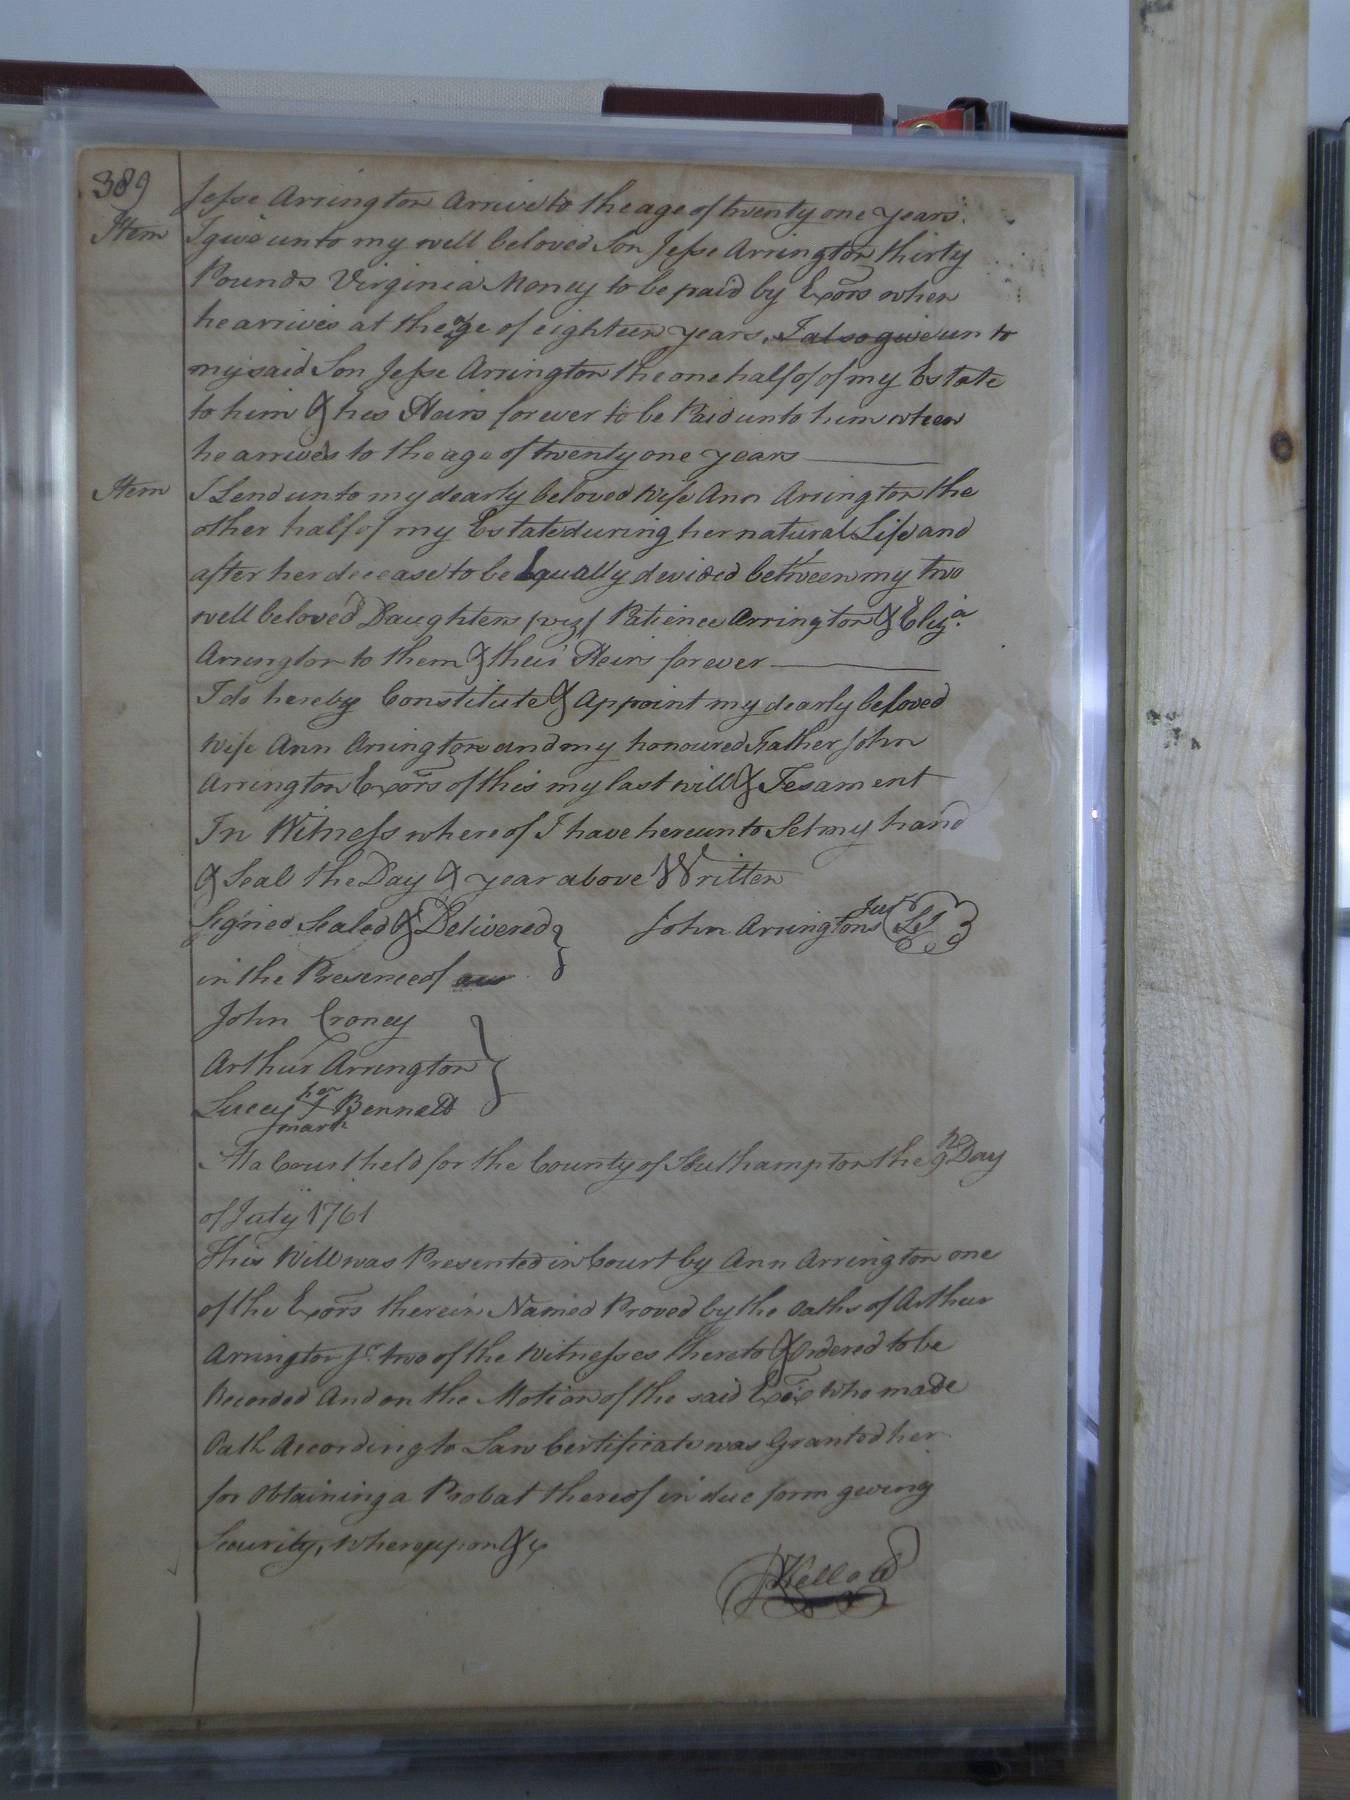 389
Jesse Arrington Arrive to the age of twenty one years.
Item I give unto my well beloved Son Jesse Arrington thirty
Pounds Virginia Money to be paid by Exors when
he arrives at the age of eighteen years, I also give un to
my said Son Jesse Arrington the one half of of my Estate
to him & his Heirs forever to be Paid unto him when
he arrives to the age of twenty one years
Item I Lend unto my dearly beloved wife Ann Arrington the
other half of my Estate during her natural Life and
after her decease to be Equally devided between my two
well beloved Daughters /viz/ Patience Arrington & Eliza.
Arrington to them & their Heirs forever
I do hereby Constitute & Appoint my dearly beloved
wife Ann Arrington and my honoured Father John
Arrington Exors of this my last will & Tesament
In Witness where of I have hereunto Set my hand
& Seal the Day & year above Written
Signed Sealed & Delivered } John Arrington Jur LS
in the Presence of
John Croney
Arthur Arrington
Lucey her Bennett
mark
At a Court held for the County of Southampton the 9th Day
of July 1761
This Will was Presented in Court by Ann Arrington one
of the Exors therein Named Proved by the oaths of Arthur
Arrington Jr. two of the Witnesses thereto & ordered to be
Recorded And on the Motion of the said Exix who made
Oath According to Law Certificate was Granted her
for Obtaining a Probat thereof in due form giveing
Security, whereupon &c